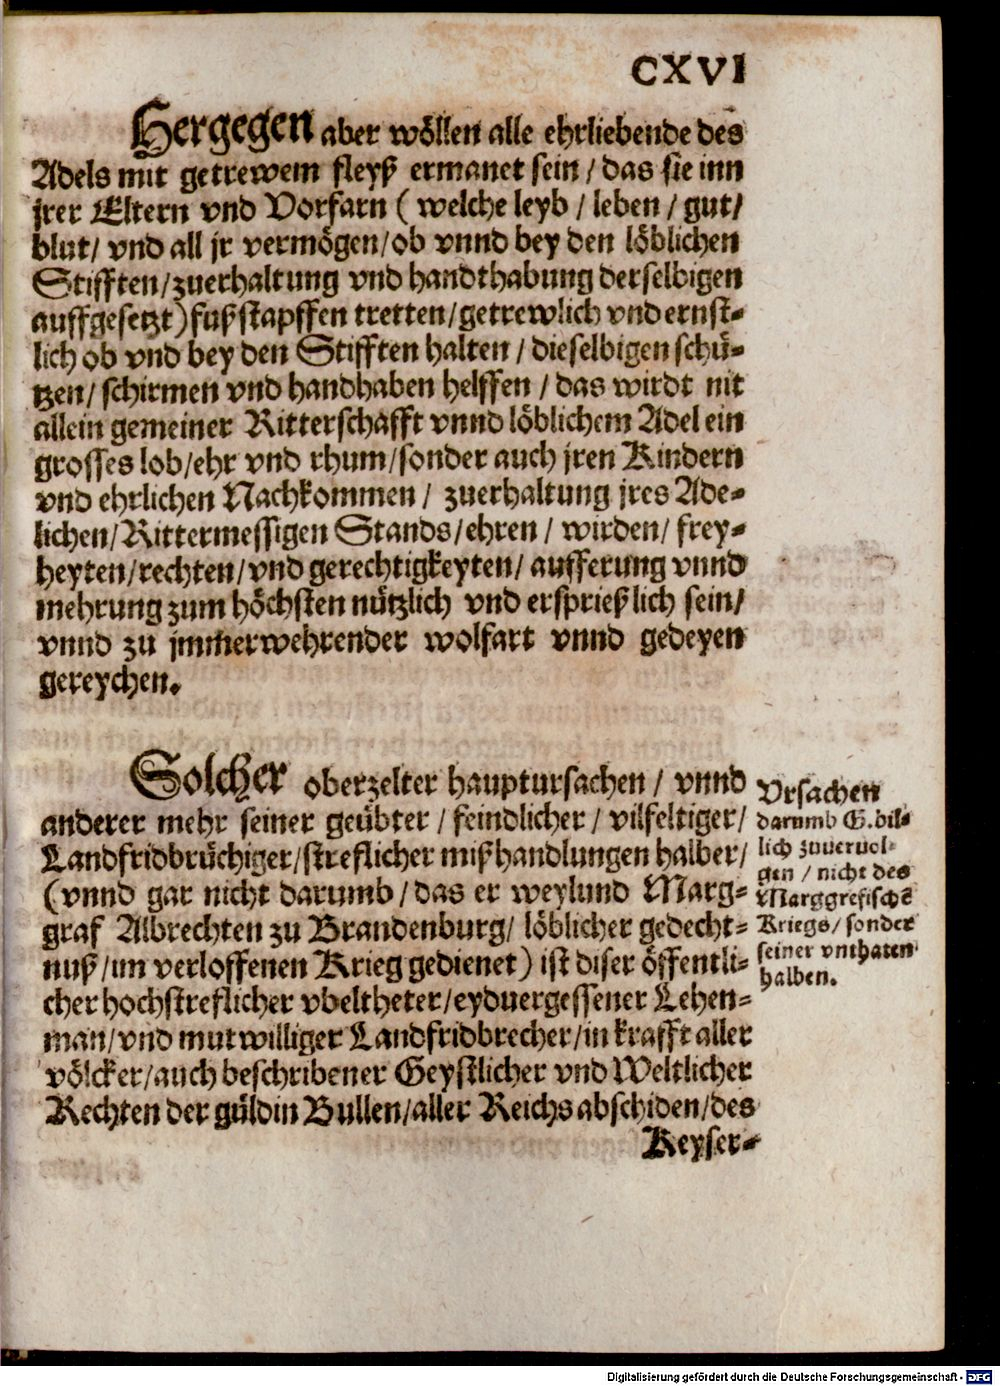 CXVI
Hergegen aber wöllen alle ehrliebende des
Adels mit getrewem fleyß ermanet sein / das sie inn
jrer Eltern vnd Vorfarn ( welche leyb / leben / gut /
blut / vnd all jr vermögen / ob vnnd bey den löblichen
Stifften / zuerhaltung vnd handthabung derselbigen
auffgesetzt) fußstapffen tretten / getrewlich vnd ernst-
lich ob vnd bey den Stifften halten / dieselbigen schü-
tzen / schirmen vnd handhaben helffen / das wirdt nit
allein gemeiner Ritterschafft vnnd löblichem Adel ein
grosses lob / ehr vnd rhum / sonder auch jren Kindern
vnd ehrlichen Nachkommen / zuerhaltung jres Ade-
lichen / Rittermessigen Stands / ehren / wirden / frey-
heyten / rechten / vnd gerechtigkeyten / aufferung vnnd
mehrung zum höchsten nützlich vnd ersprießlich sein /
vnnd zu jmmerwehrender wolfart vnnd gedeyen
gereychen.
Solcher oberzelter hauptursachen / vnnd
anderer mehr seiner geübter / feindlicher / vilfeltiger /
Landfridbrüchiger / streflicher mißhandlungen halber /
(vnnd gar nicht darumb / das er weylund Marg-
graf Albrechten zu Brandenburg / löblicher gedecht-
nuß / im verloffenen Krieg gedienet) ist diser öffentli-
cher hochstreflicher vbeltheter / eyduergessener Lehen-
man / vnd mutwilliger Landfridbrecher / in krafft aller
völcker / auch beschribener Geystlicher vnd Weltlicher
Rechten der güldin Bullen / aller Reichs abschiden / des
Keyser-
Vrsachen
darumb G. bil-
lich zuueruol-
gen / nicht des
Marggrefischē
Kriegs / sonder
seiner vnthaten
halben.
Digitalisierung gefördert durch die Deutsche Forschungsgemeinschaft - DFG